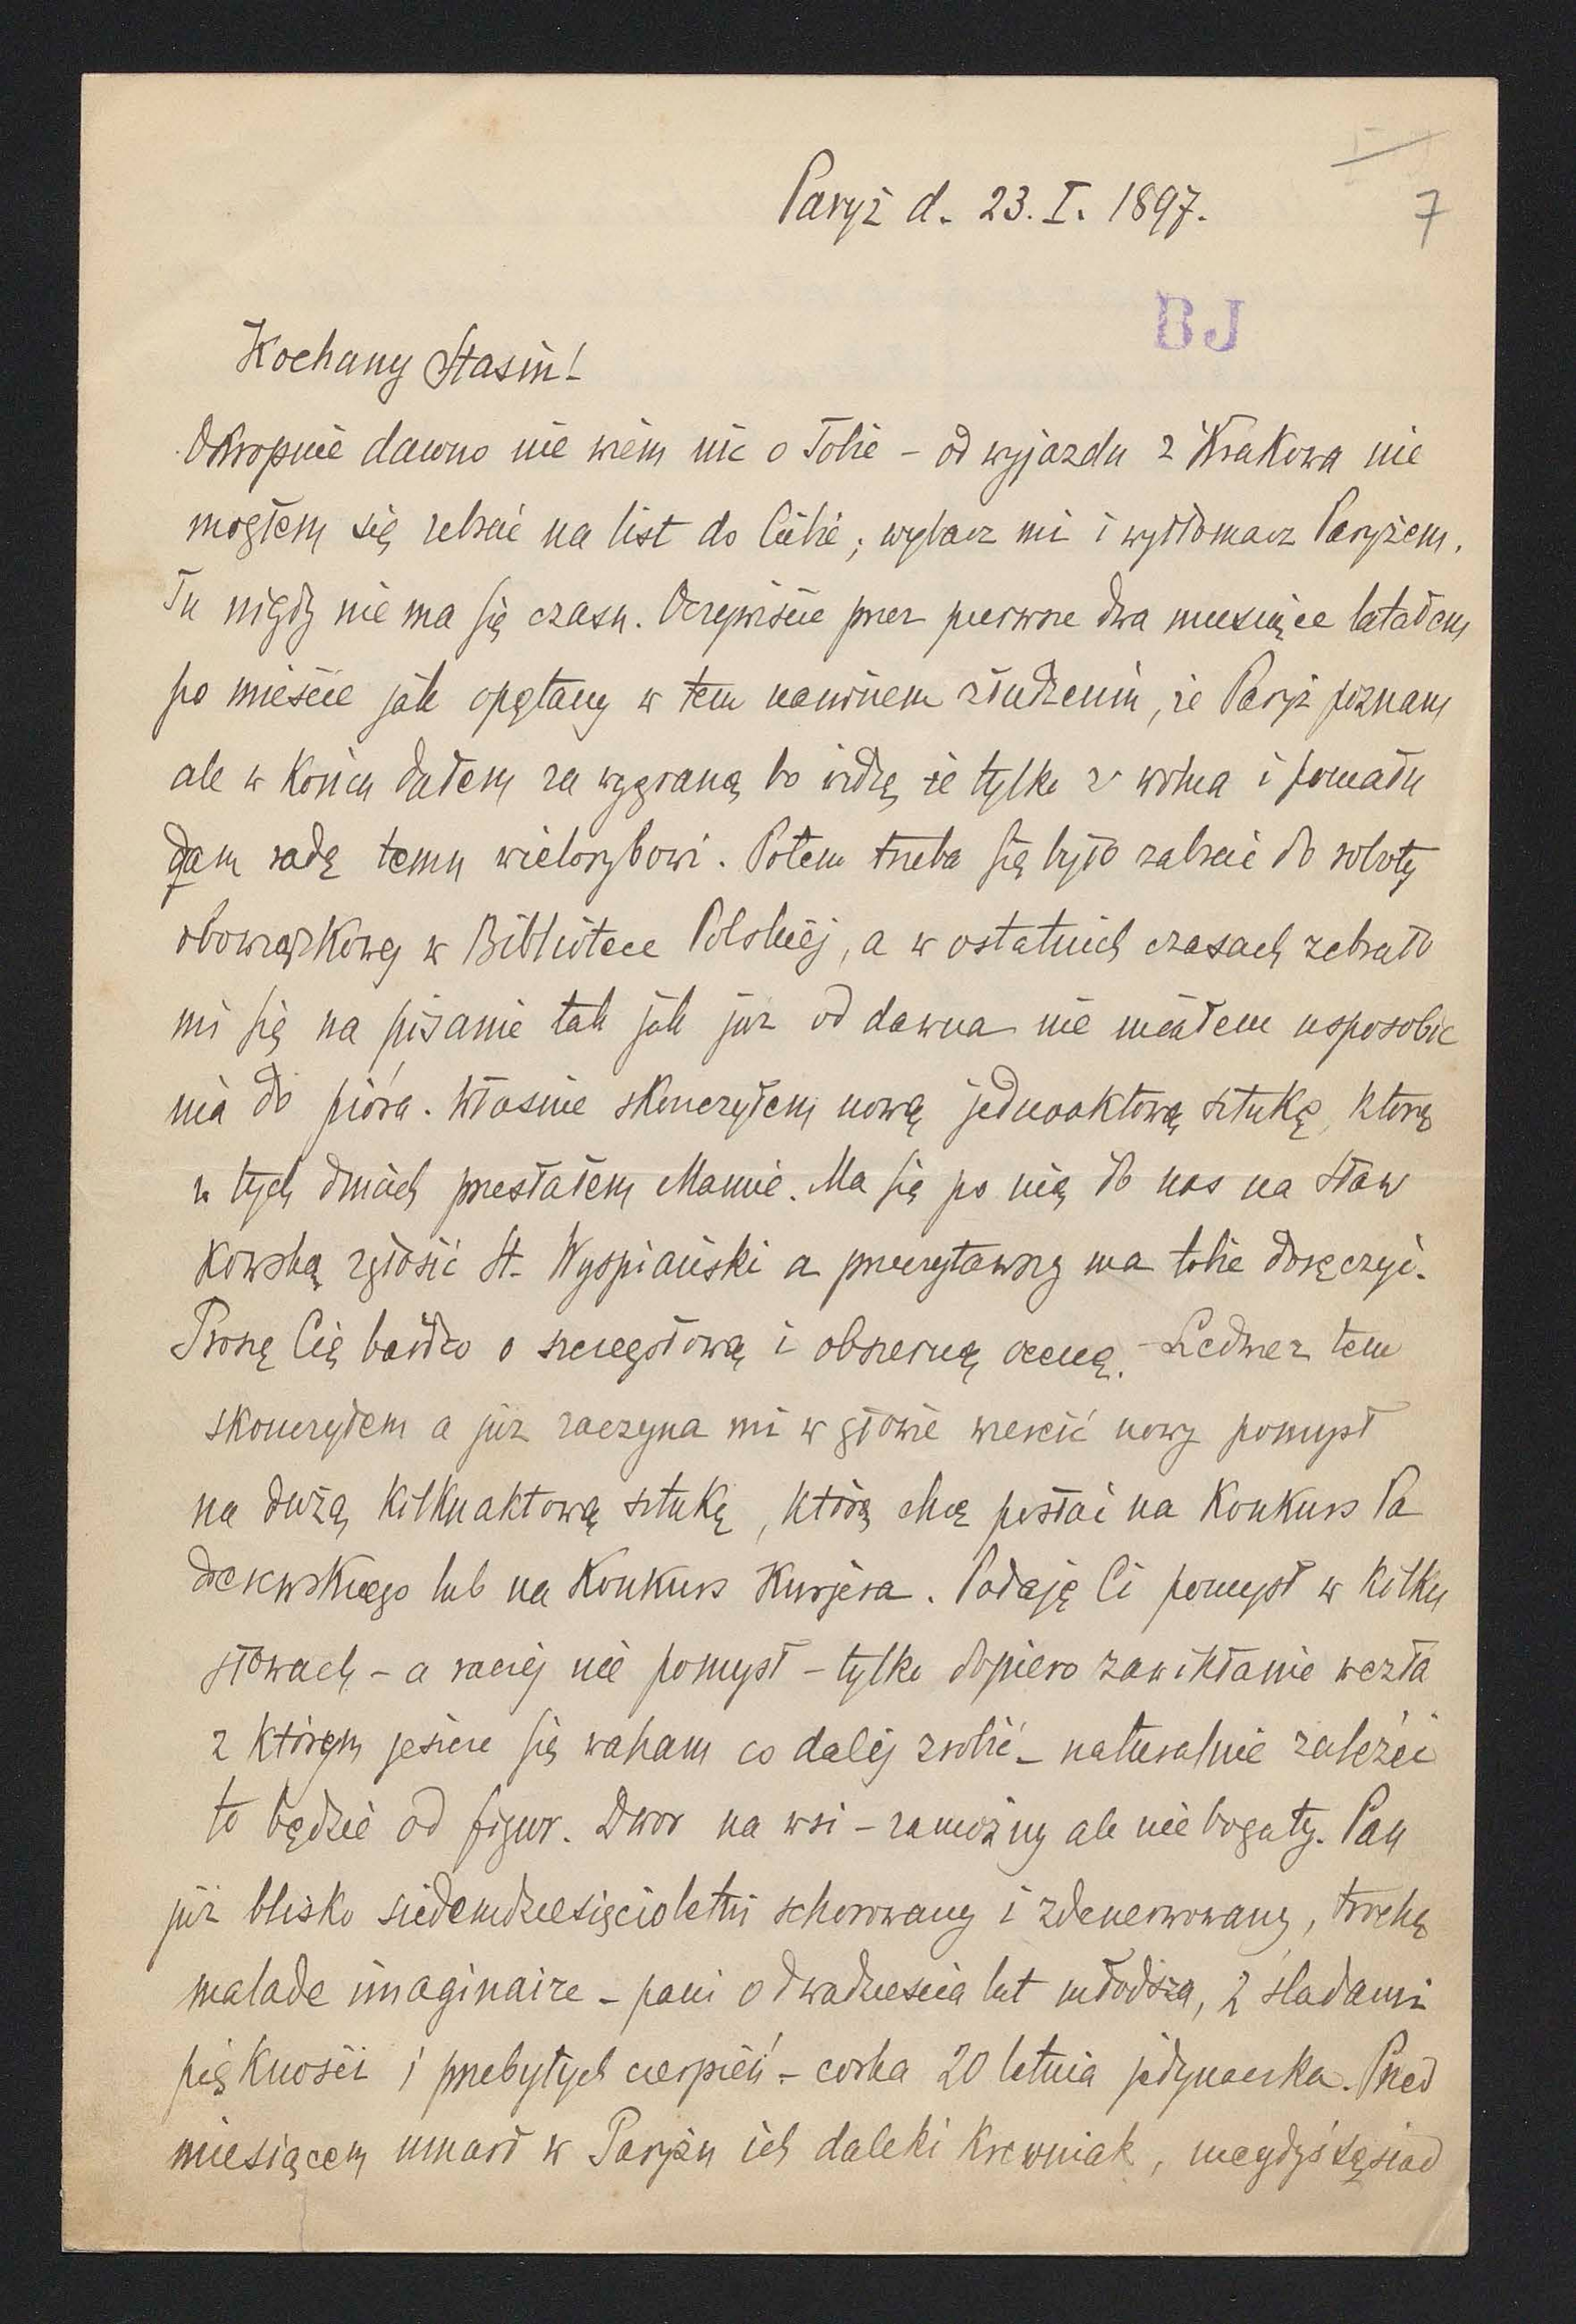 Paryż d. 23. I. 1897.
7
BJ
Kochany Stasiu!
Okropnie dawno nie wiem nic o Tobie – od wyjazdu z Krakowa nie
mogłem się zebrać na list do Ciebie; wybacz mi i wytłomacz Paryżem.
Tu nigdy nie ma się czasu. Oczywiście przez pierwsze dwa miesiące latałem
po mieście jak opętany w tem naiwnem złudzeniu, że Paryż poznam
ale w końcu dałem za wygraną bo widzę że tylko z wolna i pomału
dam radę temu wielorybowi. Potem trzeba się było zabrać do roboty
obowiązkowej w Bibliotece Polskiej, a w ostatnich czasach zebrało
mi się na pisanie tak jak już od dawna nie miałem usposobie
nia do pióra. Własnie skonczyłem nową jednoaktową sztukę, ktorą
w tych dniach przesłałem Mamie. Ma się po nią do nas na Sław
kowską zgłosić St. Wyspiański a przeczytawszy ma tobie doręczyć.
Proszę Cię bardzo o szczegołową i obszerną ocenę. – Ledwez tem
skonczyłem a już zaczyna mi w głowie wiercić nowy pomysł
na dużą kilkuaktową sztukę, którą chcę posłać na Konkurs Pa
derewskiego lub na Konkurs Kurjera. Podaję Ci pomysł w kilku
słowach – a raciej nie pomysł – tylko dopiero zawikłanie węzła
z którym jeszcze się waham co dalej zrobić – naturalnie zależeć
to będzie od figur. Dwor na wsi – zamożny ale nie bogaty. Pan
już blisko siedemdziesięcioletni schorowany i zdenerwowany, trochę
malade imaginaire – pani o dwadziescia lat młodsza, z śladami
piękności i przebytych cierpień – corka 20 letnia jedynaczka. Przed
miesiącem umarł w Paryżu ich daleki krewniak, niegdyś sąsiad